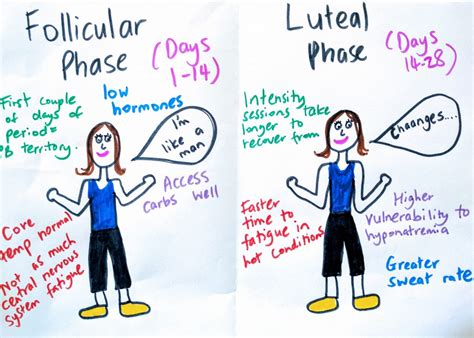 Follicular
Phase
(Days
1-14)
First couple
of days of
period=
PB territory.
low
hormones
I'm
like a
man
Access
carbs well
Core
temp normal
Not as much
central nervous
system fatigue
Luteal
Phase
(Days
14-28)
Intensity
sessions take
longer to
recover from
Chaanges....
Faster
time to
fatigue in
hot conditions
Higher
vulnerability to
hyponatremia
Greater
sweat rate